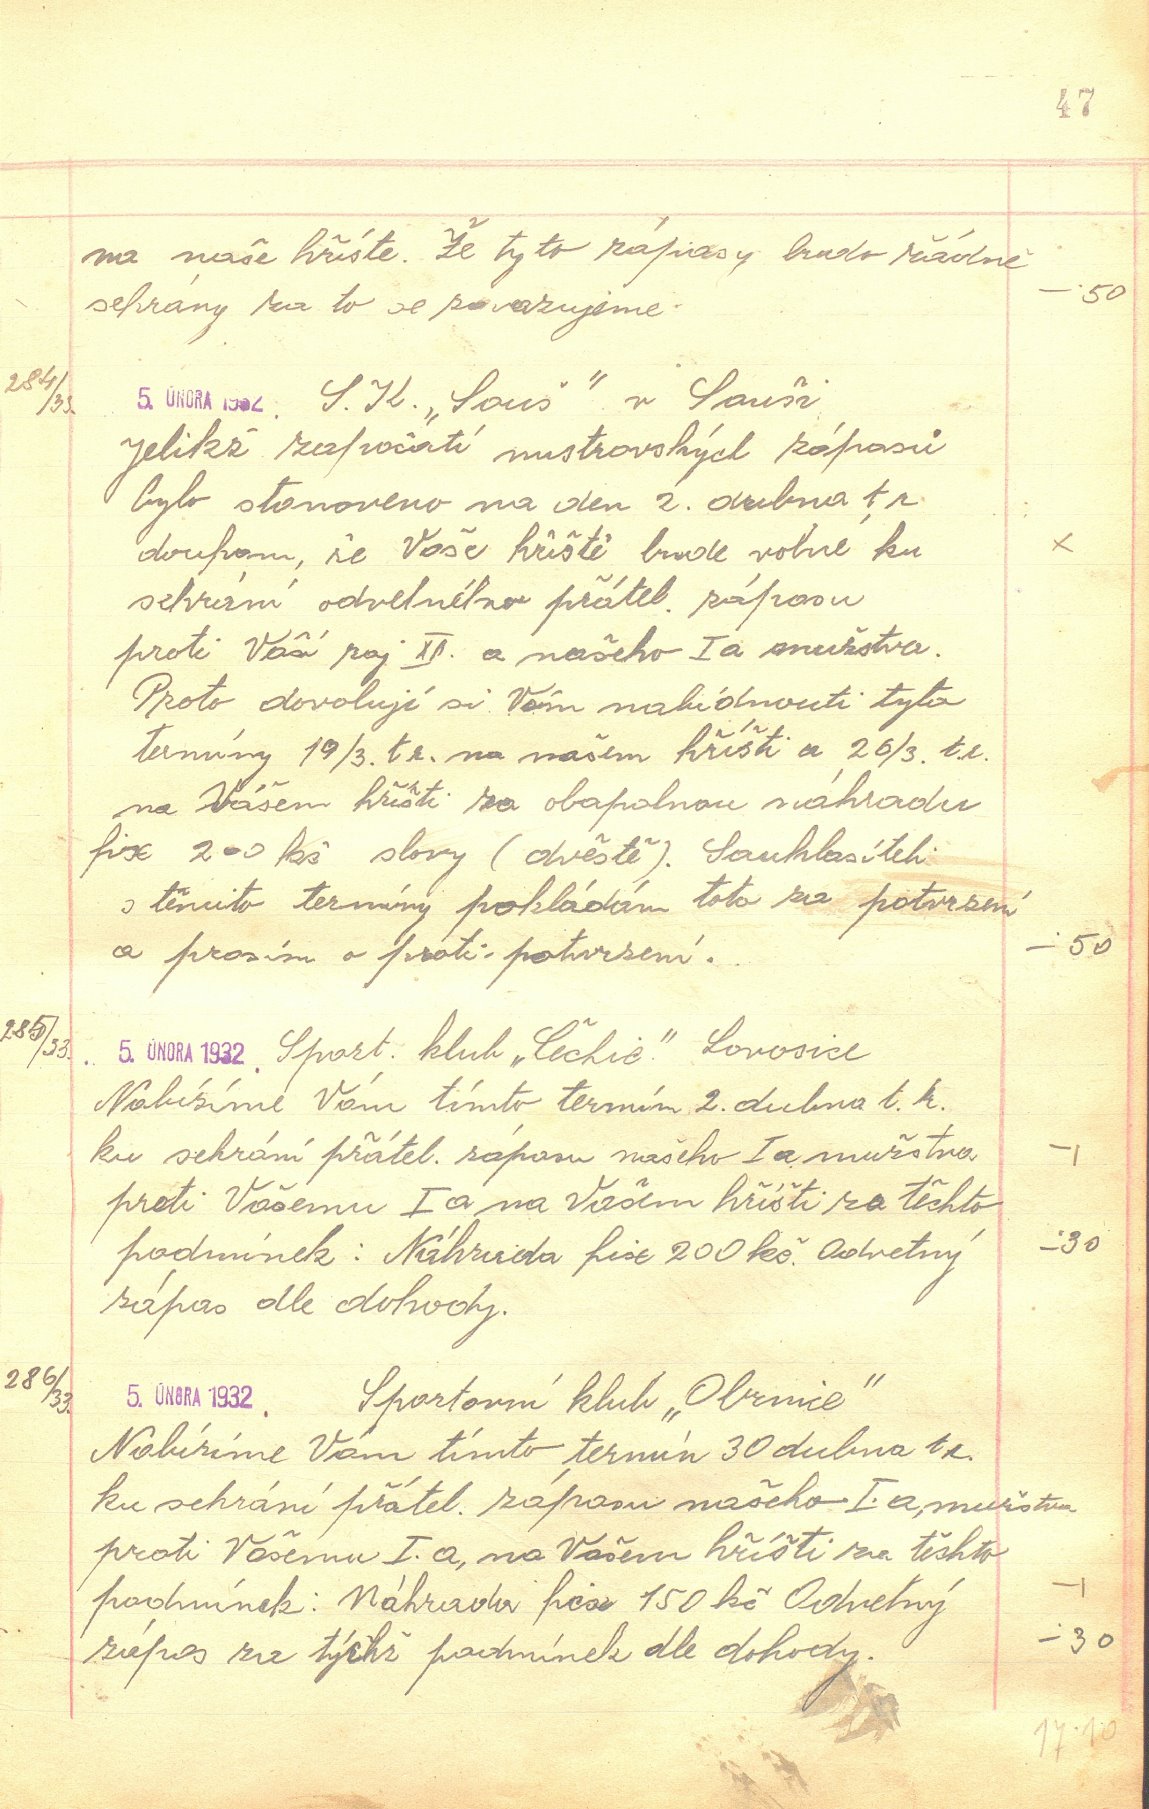 47
na naše hříšte. Že tyto zápasy budo řádně
sehrány za to se zavazujeme.
—·50
284/33.
5. ÚNORA 1932. S. K. „Souš" v Souši
jelikž započatí mistrovských zápasů
bylo stanoveno na den 2. dubna t. r.
doufam, že Vaše hřiště bude volné ku
×
sehrání odvetného přátel. zápasu
proti Vaší raj XI. a našeho Ia mužstva.
Proto dovoluji si Vám nabídnouti tyto
termíny 19/3. t.r. na našem hříšti a 26/3. t.r.
na Vášem hříšti za obapolnou náhradu
fix 200 kč slovy (dvěstě). Souhlasíteli
s těmito termíny pokládám toto za potvrzení
a prosím o proti-potvrzení.
—·50
285/33.
5. ÚNORA 1932. Sport. klub „Čechie" Lovosice
Nabízíme Vám tímto termín 2. dubna t. r.
ku sehrání přátel. zápasu našeho Ia mužstva
—1
proti Vášemu I a na Vašem hříšti za těchto
podmínek: Náhrada fix 200 kč. Odvetný
—·30
zápas dle dohody.
286/33.
5. ÚNORA 1932. Sportovní klub „Obrnice"
Nabízíme Vám tímto termín 30 dubna t.r.
ku sehrání přátel. zápasu našeho I. a, mužstva
proti Vášemu I. a, na Vašem hříšti za těchto
podmínek: Náhrada fix 150 kč Odvetný
—1
zápas za týchž podmínek dle dohody.
—·30
17·10